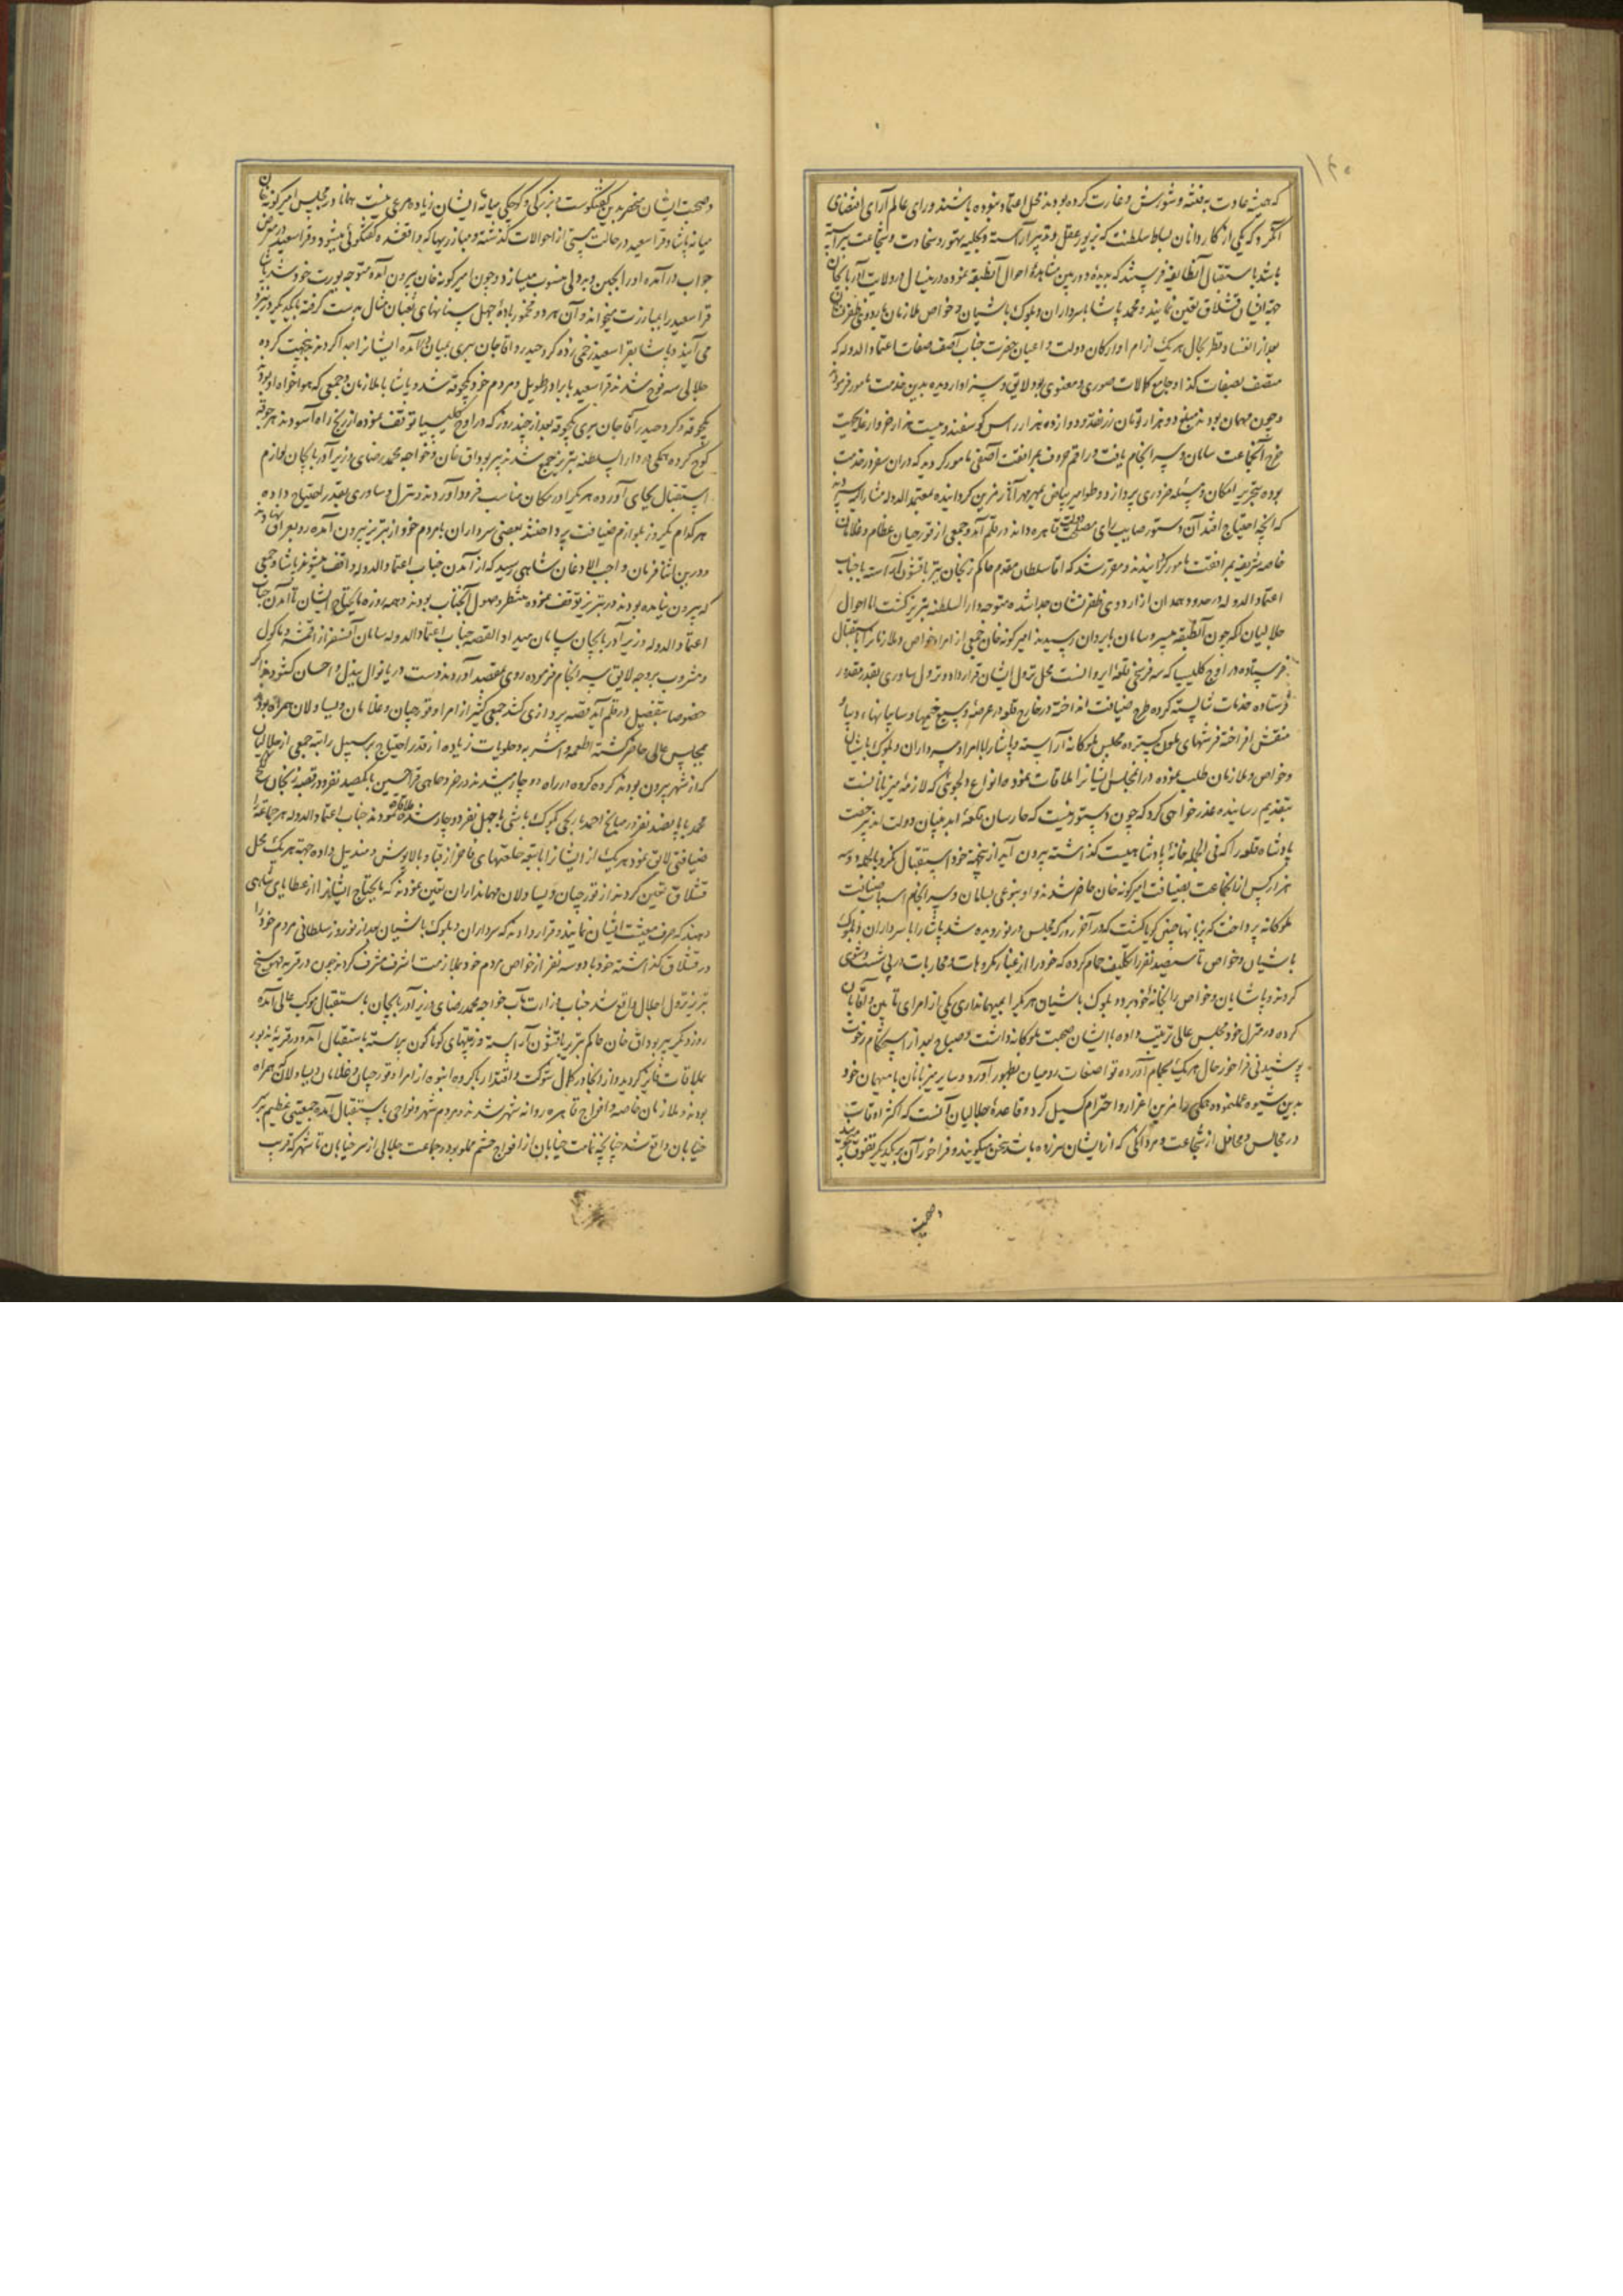 ۱۶۰
که همیشه عادت به فتنه و شورش و غارت کرده بودند محل اعتماد نبوده باشند و رای عالم آرای اقتضای
آن کرد که یکی از کاردانان بساط سلطنت که بزیور عقل و تدبیر آراسته و بحلیه تهور و سخاوت و شجاعت پیراسته
باشد باستقبال آن طایفه فرستند که بدیده دوربین مشاهده احوال آن طبقه نموده در هر سال در ولایت آذربایجان
جهة ایشان قشلاق تعیین نمایند و محمد پاشا با سرداران و بلوک باشیان و خواص ملازمان باردوی ظفرنشان
بعد از التفات و نظر بحال هر یک از امرا و ارکان دولت و اعیان حضرت جناب آصف صفات اعتماد الدوله که
متصف بصفات کذا و جامع کمالات صوری و معنوی بود لایق و سزاوار دیده بدین خدمت مامور فرمودند
و چون مهمان بودند مبلغ دو هزار تومان زر نقد و دوازده هزار راس گوسفند و بیست هزار خروار غله بجهت
خرج آن جماعت سامان و سرانجام یافت و راقم حروف بمرافقت آصفی مامور کردند که در آن سفر در خدمت
بوده بتحریر
که آنچه احتیاج افتد آن دستور صایب رای مصلحت دولت قاهره داند در قلم آمد و جمعی از قورچیان عظام و غلامان
خاصه شریفه بمرافقت مامور گردانیدند و مقرر شد که آقا سلطان مقدم حاکم زنجان نیز با قشون آراسته با جناب
اعتماد الدوله در حدود همدان از اردوی ظفرنشان جدا شده متوجه دار السلطنه تبریز گشت اما احوال
جلالیان آنکه چون آن طبقه بی سر و سامان بایروان رسیدند امیر کونه خان جمعی از امرا و خواص و ملازمان را باستقبال
فرستاده در اوچ کلیسیا که سه فرسخی قلعه ایروانست محل نزول ایشان قرار داد و نزول ساوری بقدر مقدور
فرستاده خدمات شایسته کرده طرح ضیافت انداخته در خارج قلعه در عرصه وسیع خیمها و سایبانها و دیبای
منقش افراخته فرشهای ملون گسترده مجلس ملوکانه آراسته و پاشا را با امرا و سرداران و بلوک باشیان
و خواص و ملازمان طلب نموده در آن مجلس ایشان را ملاقات نموده بانواع دلجوئی که لازمه میزبانانست
بتقدیم رسانیده عذرخواهی کرد که چون دستور نیست که حارسان قلعه ابد بنیان دولت بی رخصت
پادشاه قلعه را که فی الجمله خانه پادشاهیست گذاشته بیرون آیند از نیجهة خود استقبال نکرد بالجمله دو سه
هزار کس از آن جماعت بضیافت امیر کونه خان حاضر شدند و او بنوعی بسامان و سرانجام اسباب ضیافت
ملوکانه پرداخت که بزبانها چنین گویا گشت که در آخر روز که مجلس در نوردیده شد پاشا را با سرداران و بلوک
باشیان و خواص تا سیصد نفر را تکلیف حمام کرده که خود را از غبار مکروهات و محاربات در پی شست و شوی
کردند و پاشایان و خواص را بخانه خود برد و بلوک باشیان هر یک را بمیهمانداری یکی از امرای تابین و آقایان
کرده در منزل خود مجلس عالی ترتیب داده با ایشان صحبت ملوکانه داشت و صباح بعد از استحمام رخوت
پوشیدنی فراخور حال هر یک بحمام آورده تواضعات رومیان بظهور آورد و سایر میزبانان با میهمان خود
بدین شیوه عمل نموده همگی را قرین اعزاز و احترام گسیل کرد و قاعده جلالیان آنست که اکثر اوقات
در مجالس و محافل از شجاعت و مردانگی که از ایشان سرزده باشد سخن میگویند و فراخور آن بر یکدیگر تفوق میجویند
و صحبت
و صحبت ایشان منحصر بدین گفتگوست و بزرگی و کوچکی میانه ایشان زیاد مرعی نیست همانا در مجلس امیر کونه خان
میانه پاشا و قراسعید در حالت مستی از احوالات گذشته و مبارزیها که واقع شده گفتگوئی میشود و قراسعید در معرض
جواب درآمده او را بجبن و بددلی منسوب میسازد و چون امیر کونه خان بیرون آمده متوجه یورت خود شد پاشا
قراسعید را بمبارزت میخواند و آن هر دو مخمور باده جهل سنانهای ثعبان مثال بدست گرفته با یکدیگر در نبرد
می آیند و پاشا بقراسعید زخمی زده کرد حیدر و آقاجان سری بمیان درآمده ایشان را جدا کردند بجهت کرده
جلالی سه فوج شدند قراسعید با برادر طویل و مردم خود یکجوقه شد و پاشا با ملازمان و جمعی که هواخواه او بودند
یکجوقه و کرد حیدر آقاجان سری یکجوقه بعد از چند روز که در اوچ کلیسیا توقف نموده از رنج راه آسودند هر جوقه
کوچ کرده همگی در دار السلطنه تبریز جمع شدند پیربوداق خان و خواجه محمد رضای وزیر آذربایجان لوازم
استقبال بجای آورده هر یک را در مکان مناسب فرود آوردند و نزل و ساوری بقدر احتیاج داده
هر کدام یک روز بلوازم ضیافت پرداختند بعضی سرداران با مردم خود از تبریز بیرون آمده رو بعراق نهادند
و درین اثنا فرمان واجب الاذعان شاهی رسید که از آمدن جناب اعتماد الدوله واقف میشوند پاشا و جمعی
که بیرون نیامده بودند در تبریز توقف نموده منتظر وصول آنجناب بودند و همه روزه مایحتاج ایشان تا آمدن جناب
اعتماد الدوله وزیر آذربایجان سامان میداد القصه جناب اعتماد الدوله سامان آن سفر از اقمشه و ماکول
و مشروب بر وجه لایق سرانجام فرموده روی بمقصد آوردند و دست دریانوال ببذل و احسان گشودند اگر
خصوصیات بتفصیل در قلم آید قصه پردازی کشد جمعی کثیر از امرا و قورچیان و غلامان و یساولان همراه بودند
بمجلس عالی حاضر گشته اطعمه و اشربه و حلویات زیاده از قدر احتیاج بر سبیل راتبه جمعی از جلالیان
که از شهر بیرون بودند گروه گروه در راه دوچار میشدند در خر و حاجی قراحسین با یکصد نفر و در قصبه زنجان حاجی
محمد با پانصد نفر و در میانج احمد بیک بلوک باشی با چهل نفر دوچار شدند ملاقات نمودند جناب اعتماد الدوله هر جماعت را
ضیافتی لایق نمود هر یک از ایشان را بخلعتهای فاخر از قبا و بالاپوش و مندیل داده جهة هر یک محل
قشلاق تعیین کردند از قورچیان و یساولان مهمانداران تعیین نمودند که مایحتاج ایشان را از عطایای شاهی
دهند که صرف معیشت ایشان نمایند و قرار دادند که سرداران و بلوک باشیان بعد از نوروز سلطانی مردم خود را
در قشلاق گذاشته خود با دو سه نفر از خواص مردم خود بملازمت اشرف مشرف گردند چون در قریه فهوسفنج
تبریز نزول اجلال واقع شد جناب وزارت مآب خواجه محمد رضای وزیر آذربایجان باستقبال موکب عالی آمده
روز دیگر پیربوداق خان حاکم تبریز با قشون آراسته و زینتهای گوناگون پیراسته باستقبال آمده در قریه مذبور
بملاقات فایز گردید و از آنجا در کمال شوکت و اقتدار با گروه انبوه از امرا و قورچیان و غلامان و یساولان همراه
بودند و ملازمان خاصه و افواج قاهره روانه شهر شدند و مردم شهر و نواحی باستقبال آمده جمعیتی عظیم بر سر
خیابان واقع شد چنانچه تمامت خیابان از افواج حشم مملو بود و جماعت جلالی از سر خیابان تا شهر که قریب